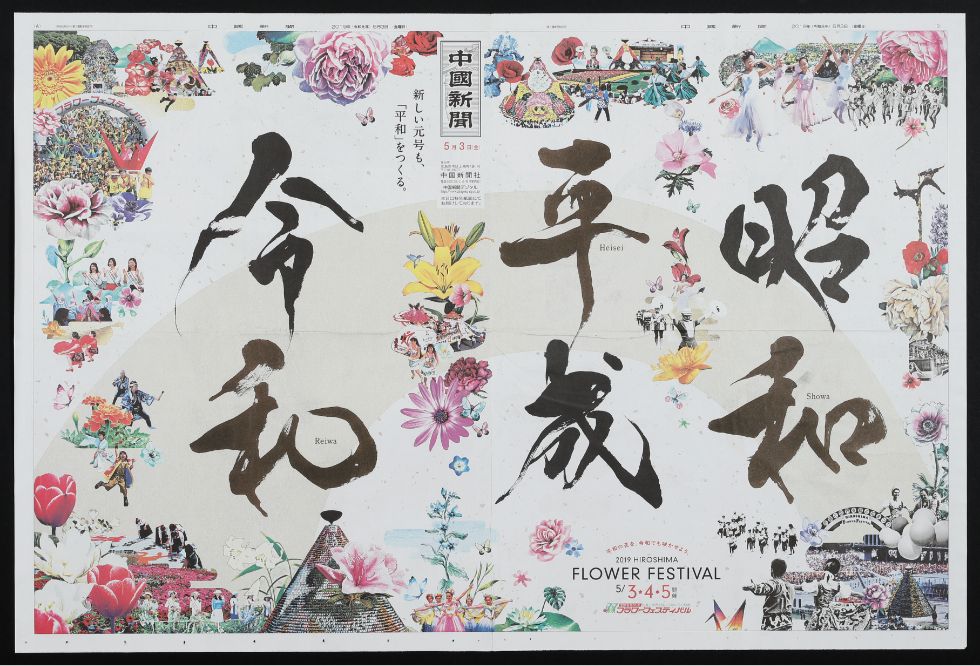 中國新聞
5月3日金
中国新聞社
中国新聞デジタル
新しい元号も、
「平和」をつくる。
昭和
Showa
平成
Heisei
令和
Reiwa
2019 HIROSHIMA
FLOWER FESTIVAL
5/3・4・5
フラワーフェスティバル